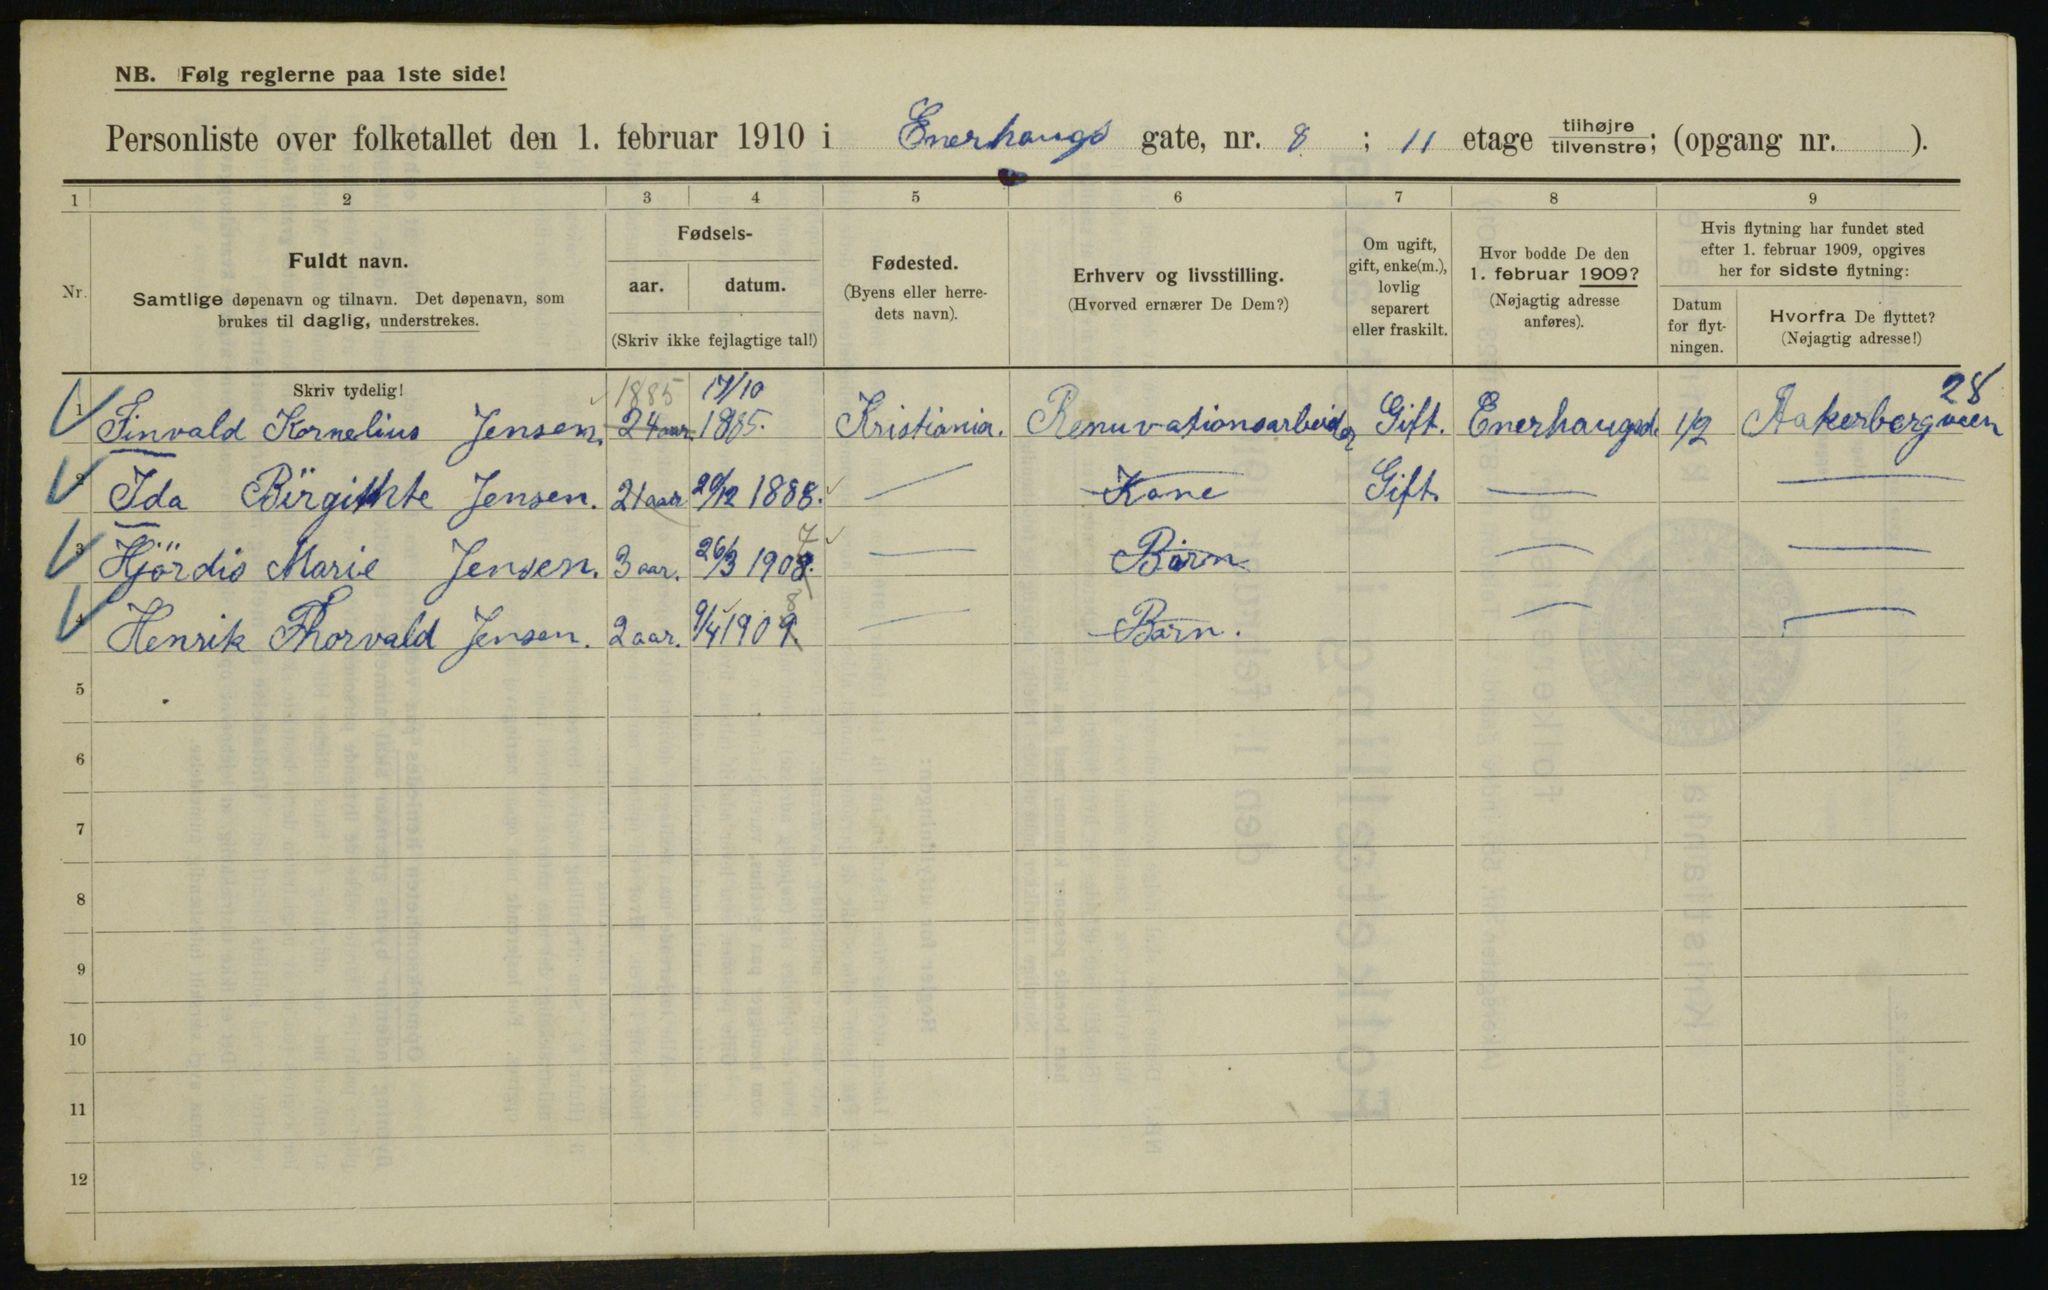 NB. Følg reglerne paa 1ste side!
Personliste over folketallet den 1. februar 1910 i Enerhaugs gate, nr. 8 ; 11 etage tilhøjre tilvenstre; (opgang nr. ).
1 2 3 4 5 6 7 8 9
Nr.
Fuldt navn.
Samtlige døpenavn og tilnavn. Det døpenavn, som
brukes til daglig, understrekes.
Fødsels-
aar. datum.
(Skriv ikke fejlagtige tal!)
Fødested.
(Byens eller herre-
dets navn).
Erhverv og livsstilling.
(Hvorved ernærer De Dem?)
Om ugift,
gift, enke(m.),
lovlig
separert
eller fraskilt.
Hvor bodde De den
1. februar 1909?
(Nøjagtig adresse
anføres).
Hvis flytning har fundet sted
efter 1. februar 1909, opgives
her for sidste flytning:
Datum
for flyt-
ningen.
Hvorfra De flyttet?
(Nøjagtig adresse!)
Skriv tydelig! 1885 17/10 28
1 Finvald Kornelius Jensen. 24 aar. 1885. Kristiania. Renuvationsarbeider Gift. Enerhaugsd. 1/2 Aakerbergveien
2 Ida Birgithte Jensen. 21 aar 20/12 1888. — Kone Gift. — —
3 Hjördis Marie Jensen. 3 aar. 26/3 1908. 7 — Barn. — —
4 Henrik Thorvald Jensen. 2 aar. 9/4 1909. 8 — Barn. — —
5
6
7
8
9
10
11
12